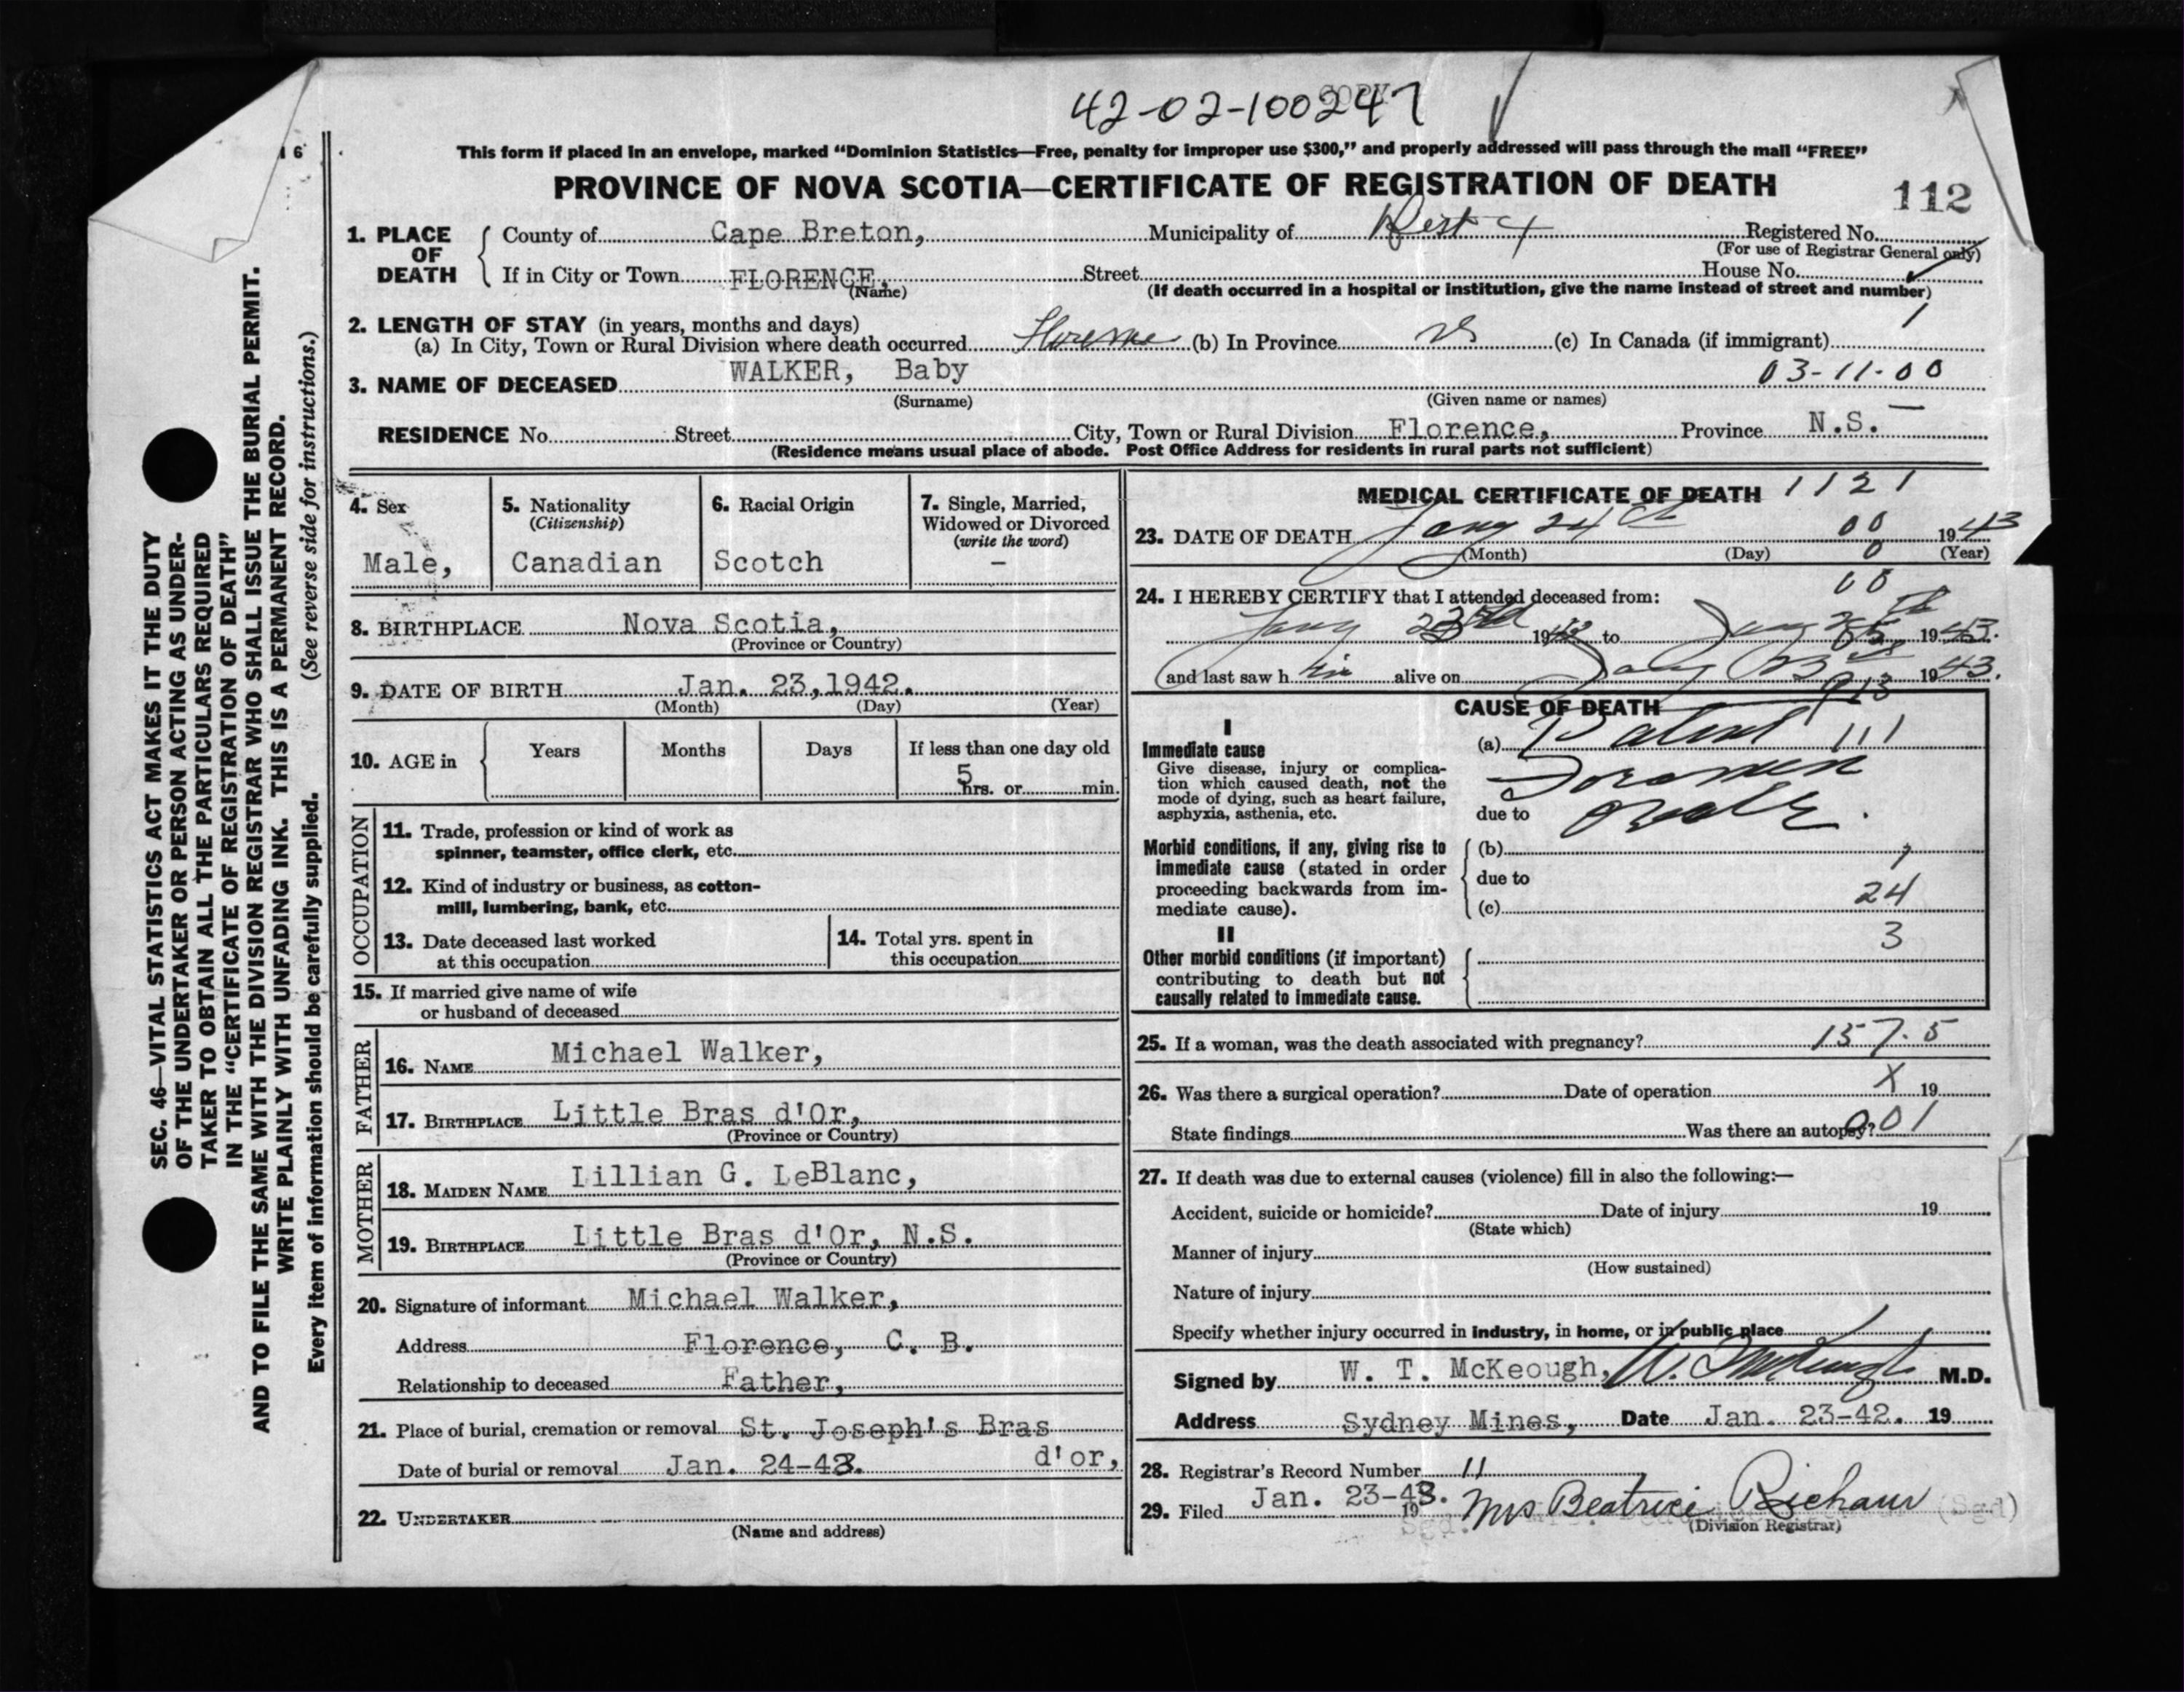 COPY
42-02-100247
16
This form if placed in an envelope, marked “Dominion Statistics—Free, penalty for improper use $300,” and properly addressed will pass through the mail “FREE”
PROVINCE OF NOVA SCOTIA—CERTIFICATE OF REGISTRATION OF DEATH 112
1. PLACE OF DEATH
County of Cape Breton, Municipality of Registered No.
(For use of Registrar General only)
If in City or Town FLORENCE, Street House No.
(Name) (If death occurred in a hospital or institution, give the name instead of street and number)
2. LENGTH OF STAY (in years, months and days) 1
(a) In City, Town or Rural Division where death occurred Florence (b) In Province (c) In Canada (if immigrant)
3. NAME OF DECEASED WALKER, Baby 03-11-00
(Surname) (Given name or names)
RESIDENCE No. Street City, Town or Rural Division Florence, Province N.S.
(Residence means usual place of abode. Post Office Address for residents in rural parts not sufficient)
4. Sex
Male,
5. Nationality
(Citizenship)
Canadian
6. Racial Origin
Scotch
7. Single, Married,
Widowed or Divorced
(write the word)
-
8. BIRTHPLACE Nova Scotia,
(Province or Country)
9. DATE OF BIRTH Jan. 23, 1942.
(Month) (Day) (Year)
10. AGE in Years Months Days If less than one day old
5 hrs. or min.
OCCUPATION
11. Trade, profession or kind of work as
spinner, teamster, office clerk, etc.
12. Kind of industry or business, as cotton-
mill, lumbering, bank, etc.
13. Date deceased last worked
at this occupation
14. Total yrs. spent in
this occupation
15. If married give name of wife
or husband of deceased
FATHER
16. NAME Michael Walker,
17. BIRTHPLACE Little Bras d'Or,
(Province or Country)
MOTHER
18. MAIDEN NAME Lillian G. LeBlanc,
19. BIRTHPLACE Little Bras d'Or, N.S.
(Province or Country)
20. Signature of informant Michael Walker,
Address Florence, C. B.
Relationship to deceased Father,
21. Place of burial, cremation or removal St. Joseph's Bras
d'or,
Date of burial or removal Jan. 24-43.
22. UNDERTAKER
(Name and address)
MEDICAL CERTIFICATE OF DEATH 1121
23. DATE OF DEATH Jany 24th 00 1943
(Month) (Day) 0 (Year)
00
24. I HEREBY CERTIFY that I attended deceased from:
Jany 23rd 1943 to Jany 1943.
and last saw h im alive on Jany 23rd 1943.
CAUSE OF DEATH
I
Immediate cause
Give disease, injury or complica-
tion which caused death, not the
mode of dying, such as heart failure,
asphyxia, asthenia, etc.
(a) Patent 111
Foramen
due to Ovale.
Morbid conditions, if any, giving rise to
immediate cause (stated in order
proceeding backwards from im-
mediate cause).
(b)
due to
(c) 24
3
II
Other morbid conditions (if important)
contributing to death but not
causally related to immediate cause.
25. If a woman, was the death associated with pregnancy? 157.5
26. Was there a surgical operation? Date of operation X 19
State findings Was there an autopsy? 001
27. If death was due to external causes (violence) fill in also the following:—
Accident, suicide or homicide? Date of injury 19
(State which)
Manner of injury
(How sustained)
Nature of injury
Specify whether injury occurred in industry, in home, or in public place
Signed by W. T. McKeough, W. T. McKeough M.D.
Address Sydney Mines, Date Jan. 23-42. 19
28. Registrar's Record Number 11
29. Filed Jan. 23-43. 19 Mrs Beatrice Richaur (Sgd)
Sgd. (Division Registrar)
SEC. 46—VITAL STATISTICS ACT MAKES IT THE DUTY
OF THE UNDERTAKER OR PERSON ACTING AS UNDER-
TAKER TO OBTAIN ALL THE PARTICULARS REQUIRED
IN THE “CERTIFICATE OF REGISTRATION OF DEATH”
AND TO FILE THE SAME WITH THE DIVISION REGISTRAR WHO SHALL ISSUE THE BURIAL PERMIT.
WRITE PLAINLY WITH UNFADING INK. THIS IS A PERMANENT RECORD.
Every item of information should be carefully supplied. (See reverse side for instructions.)